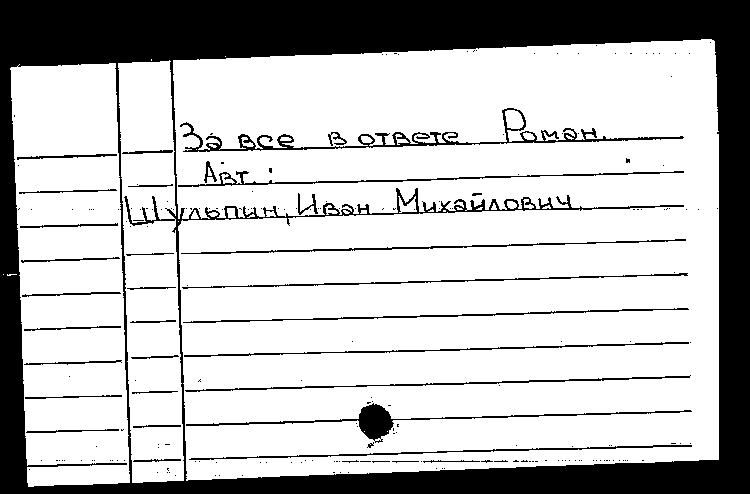 За все в ответе Роман.
Авт.:
Шульпин, Иван Михайлович